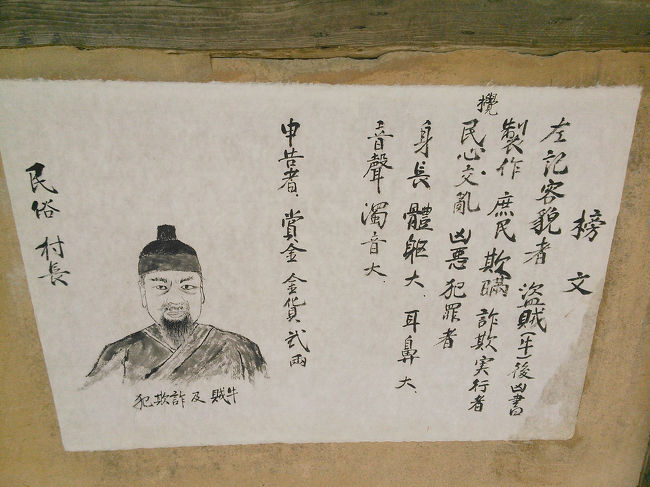 榜文
左記容貌者 盜賊(牛)後凶書
製作 庶民 欺瞞 詐欺実行者
攪民心交亂 凶悪犯罪者
身長 體軀大、耳鼻大、
音聲 濁音大、
申告者、賞金 金貨 弐両
牛賊 及 詐欺犯
民俗 村長